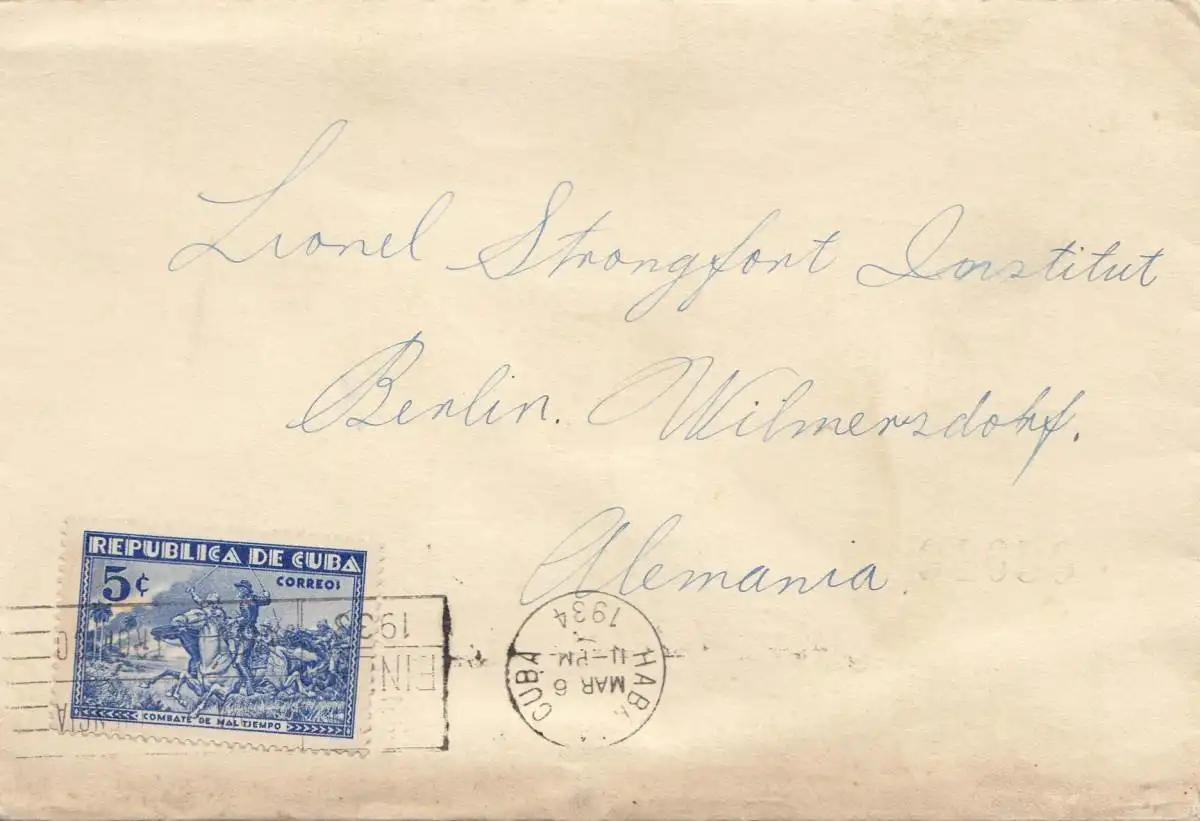 Lionel Strongfort Institut
Berlin. Wilmersdorf.
Alemania.
REPUBLICA DE CUBA
5¢
CORREOS
COMBATE DE MAL TIEMPO
HABA
CUBA
MAR 6
11-PM
1934